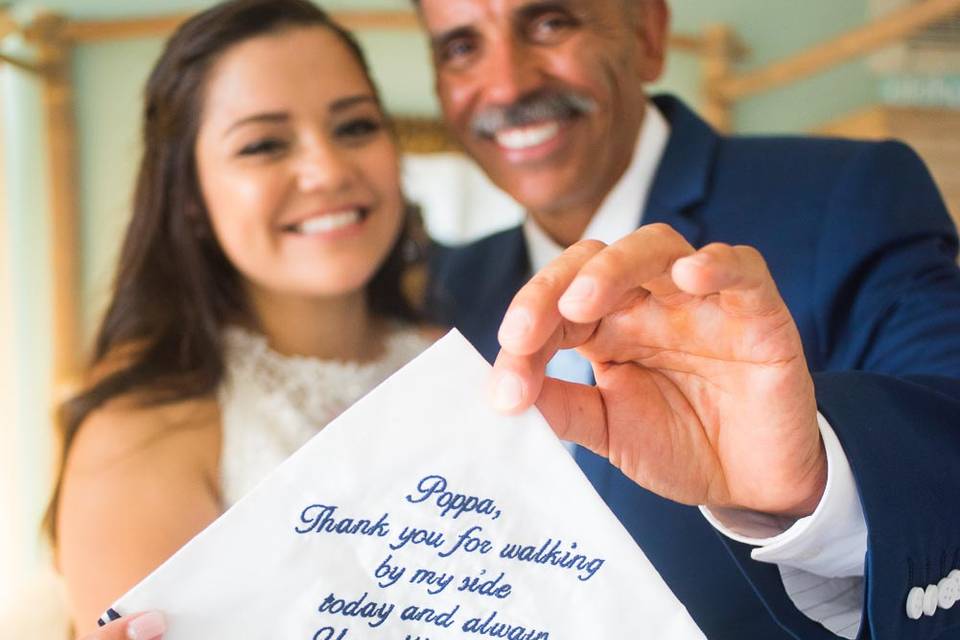 Poppa,
Thank you for walking
by my side
today and always